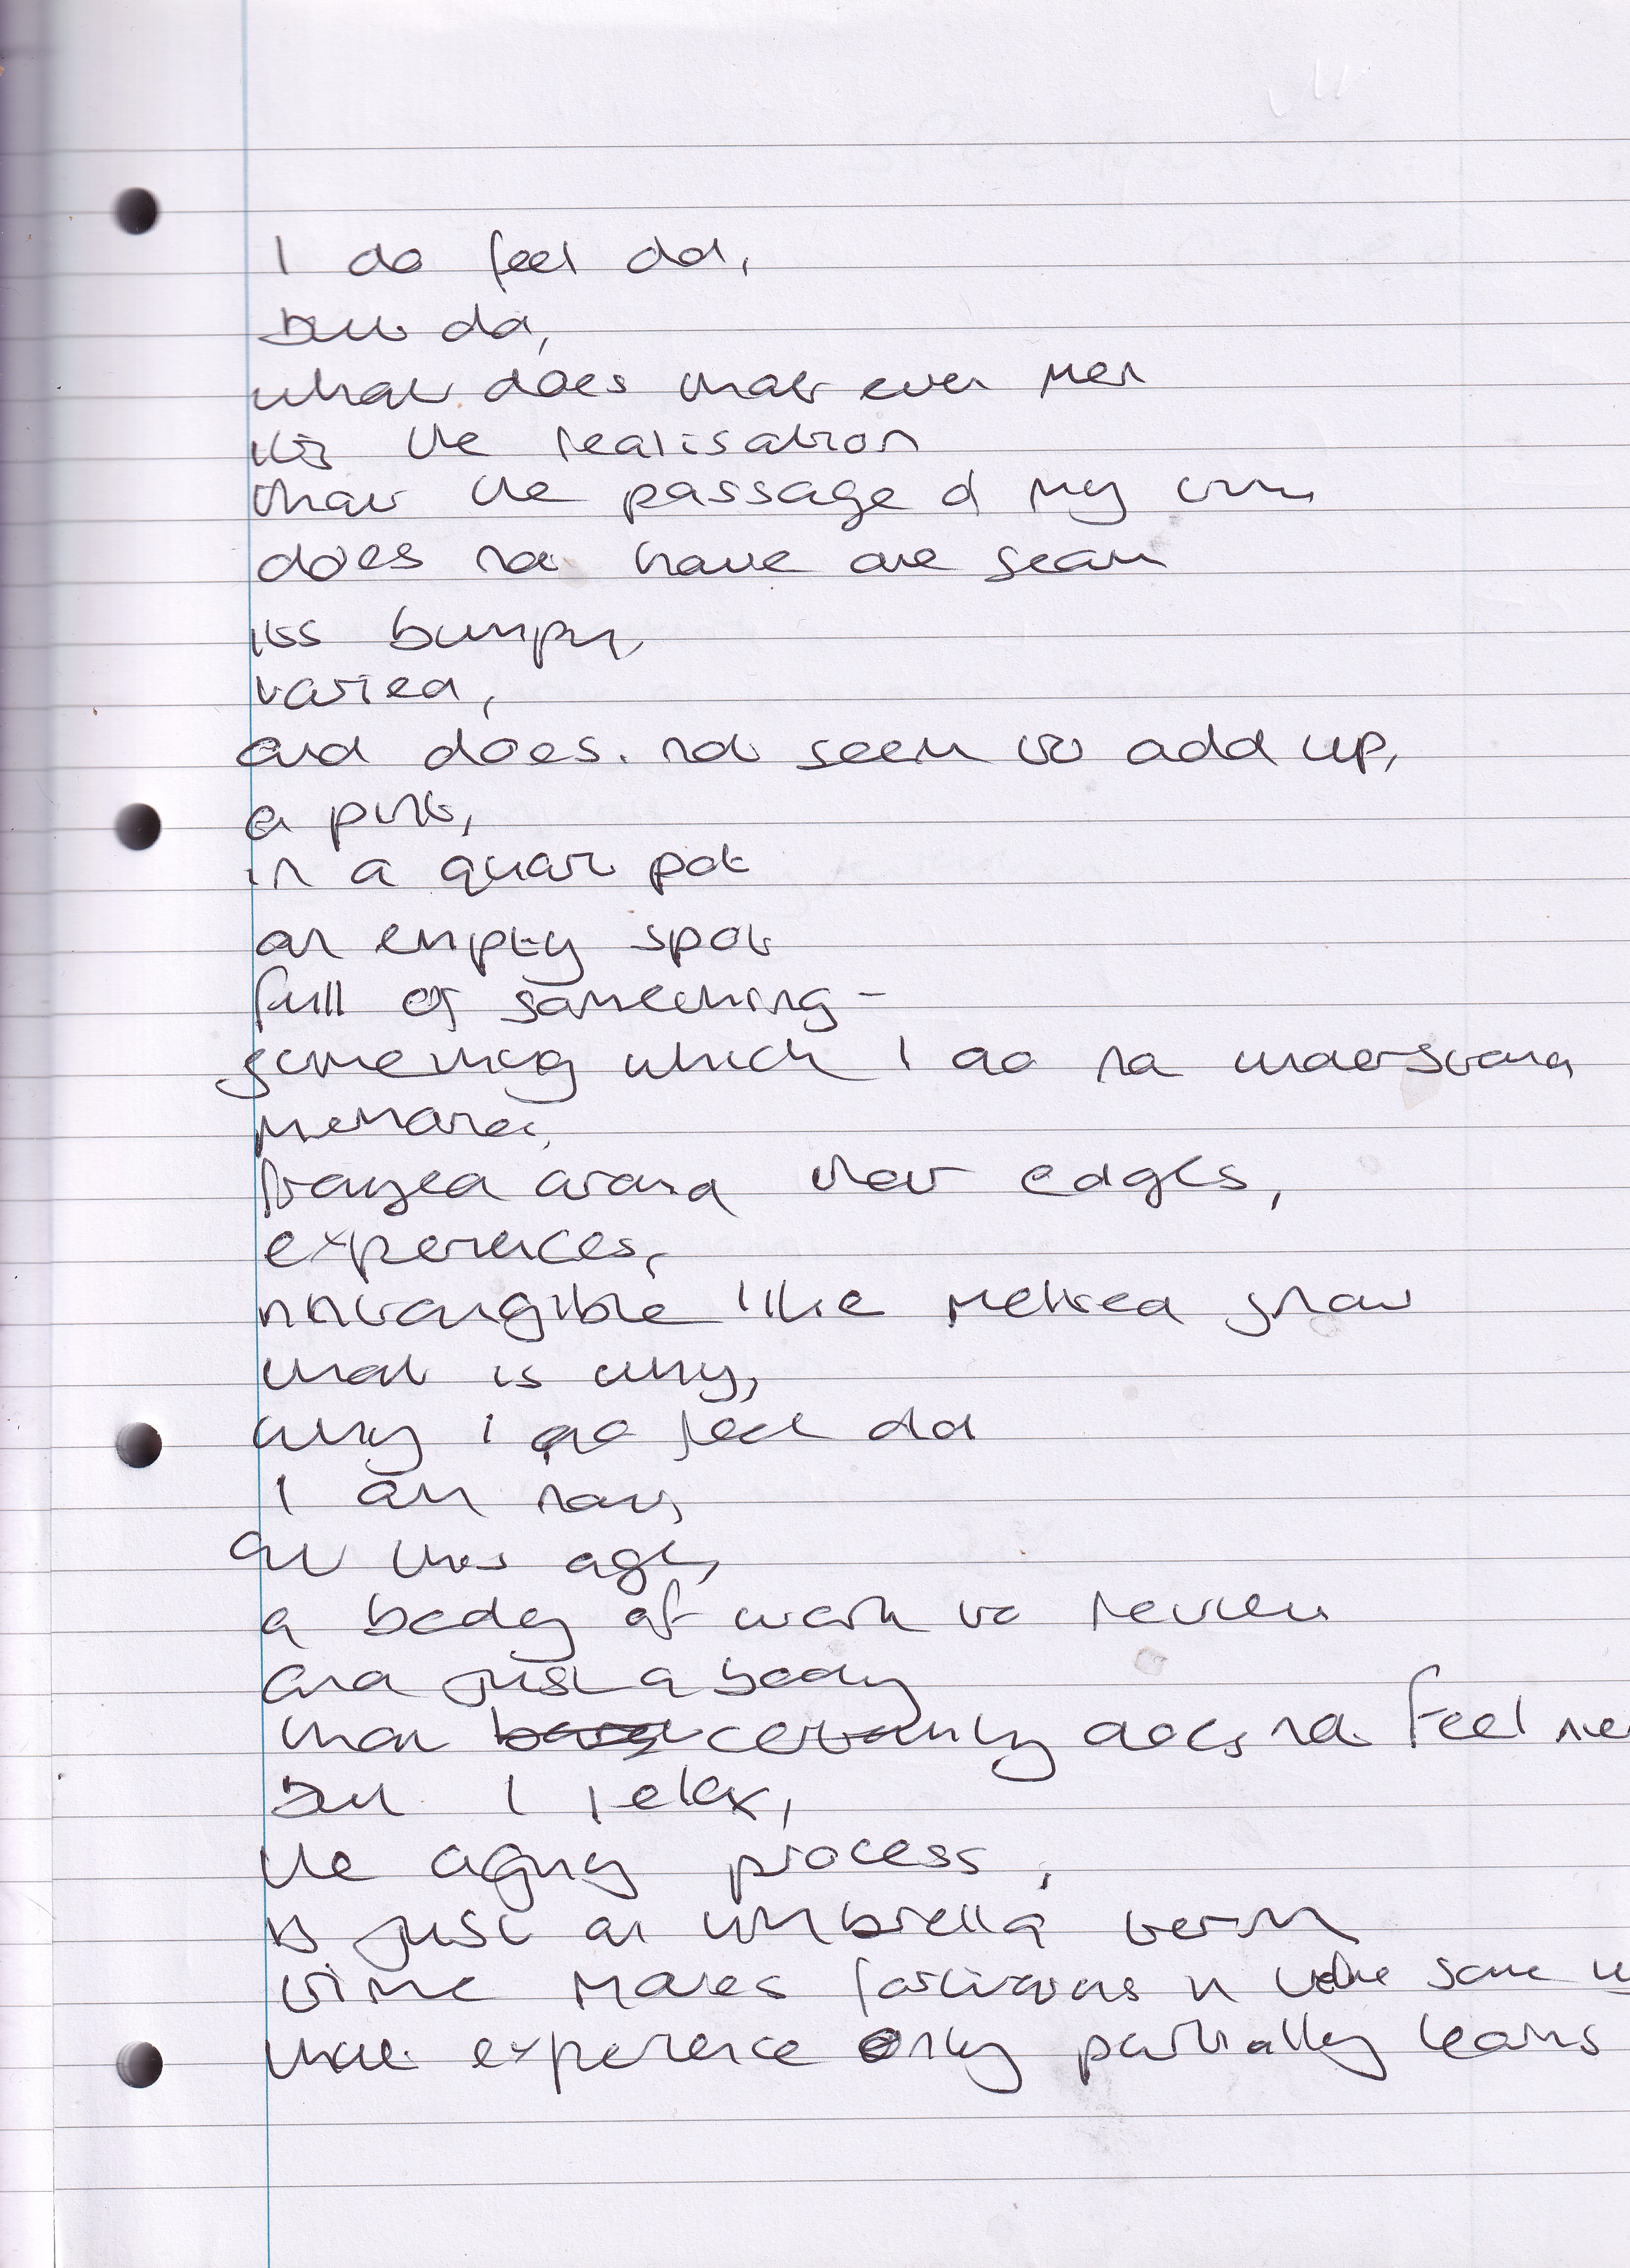 I do feel old,
but old,
what does that even mean
it's the realisation
that the passage of my time
does not have one seam
its bumpy,
varied,
and does. not seem to add up,
a pint,
in a quart pot
an empty spot
full of something -
something which I do not understand
memories,
frayed around their edges,
experiences,
intangible like melted snow
that is why,
why I do feel old
I am now,
at this age,
a body of work to review
and just a body
that certainly does not feel new
but I relax,
the aging process,
is just an umbrella term
time moves forwards in the same
that experience only partially learns